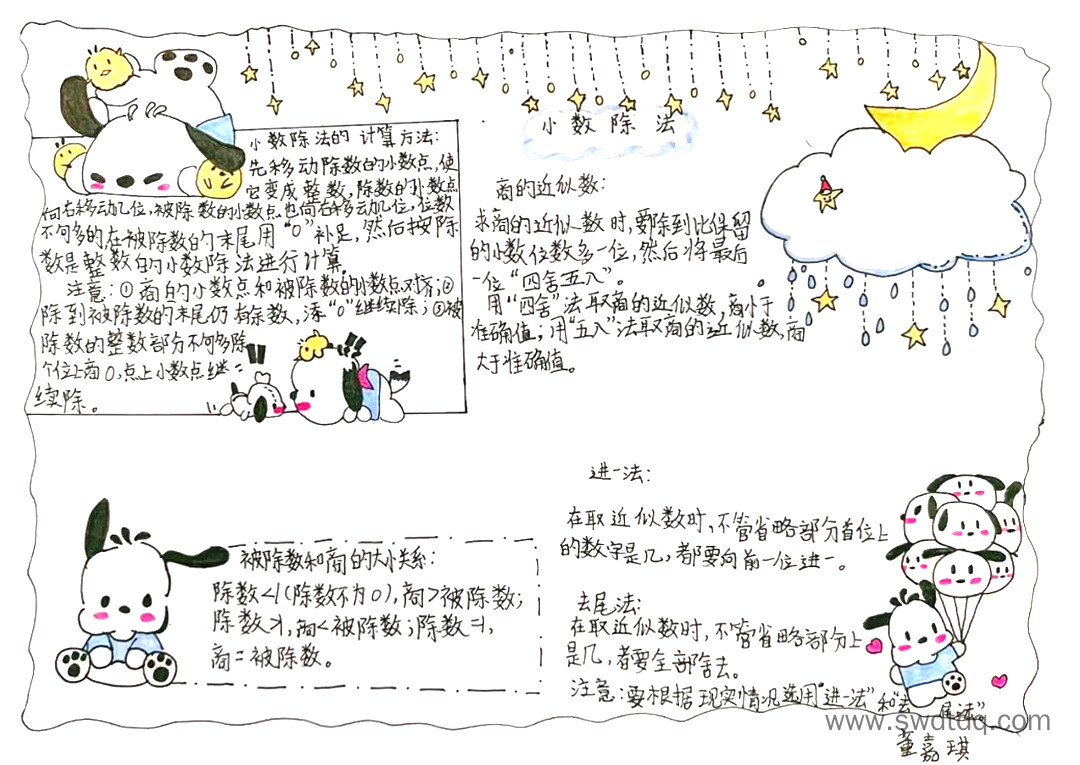 小数除法
小数除法的计算方法：
先移动除数的小数点，使
它变成整数，除数的小数点
向右移动几位，被除数的小数点也向右移动几位，位数
不够多的在被除数的末尾用“0”补足，然后按除
数是整数的小数除法进行计算。
注意：①商的小数点和被除数的小数点对齐；②
除到被除数的末尾仍有余数，添“0”继续除；③被
除数的整数部分不够多除
个位上商0，点上小数点继
续除。
商的近似数：
求商的近似数时，要除到比保留
的小数位数多一位，然后将最后
一位“四舍五入”。
用“四舍”法取商的近似数，商小于
准确值；用“五入”法取商的近似数，商
大于准确值。
被除数和商的大小关系：
除数<1（除数不为0），商>被除数；
除数>1，商<被除数；除数=1，
商=被除数。
进一法：
在取近似数时，不管省略部分首位上
的数字是几，都要向前一位进一。
去尾法：
在取近似数时，不管省略部分上
是几，都要全部舍去。
注意：要根据现实情况选用“进一法”和“去尾法”。
www.swdtdq.com
童嘉琪